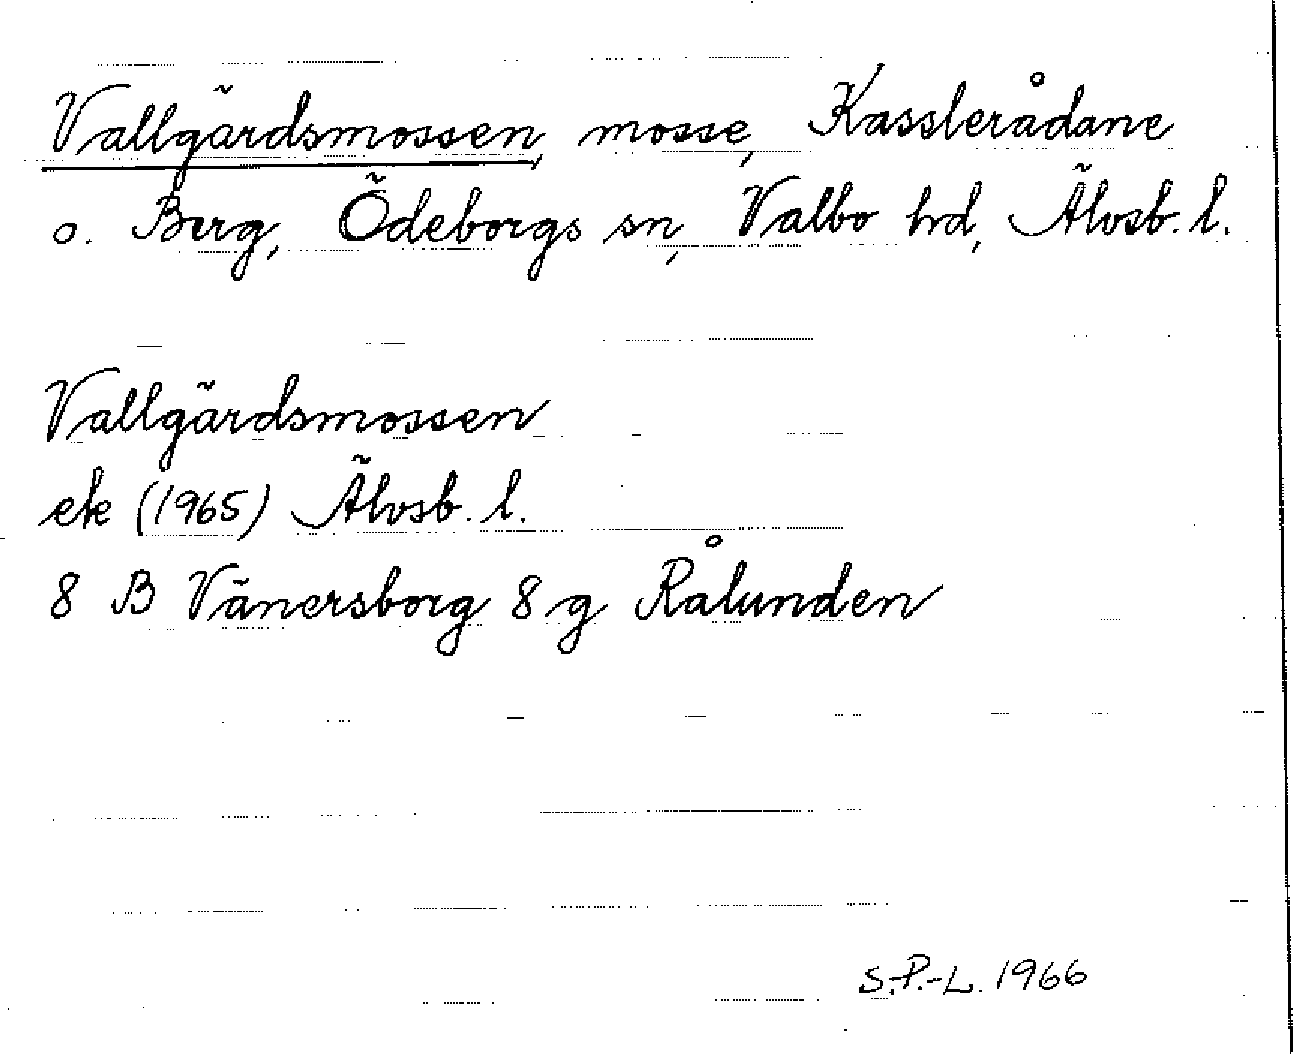 Vallgärdsmossen, mosse, Kasslerådane
o. Berg, Ödeborgs sn, Valbo hd, Älvsb. l.
Vallgärdsmossen
ek (1965) Älvsb. l.
8 B Vänersborg 8 g Rålunden
S.P.-L. 1966